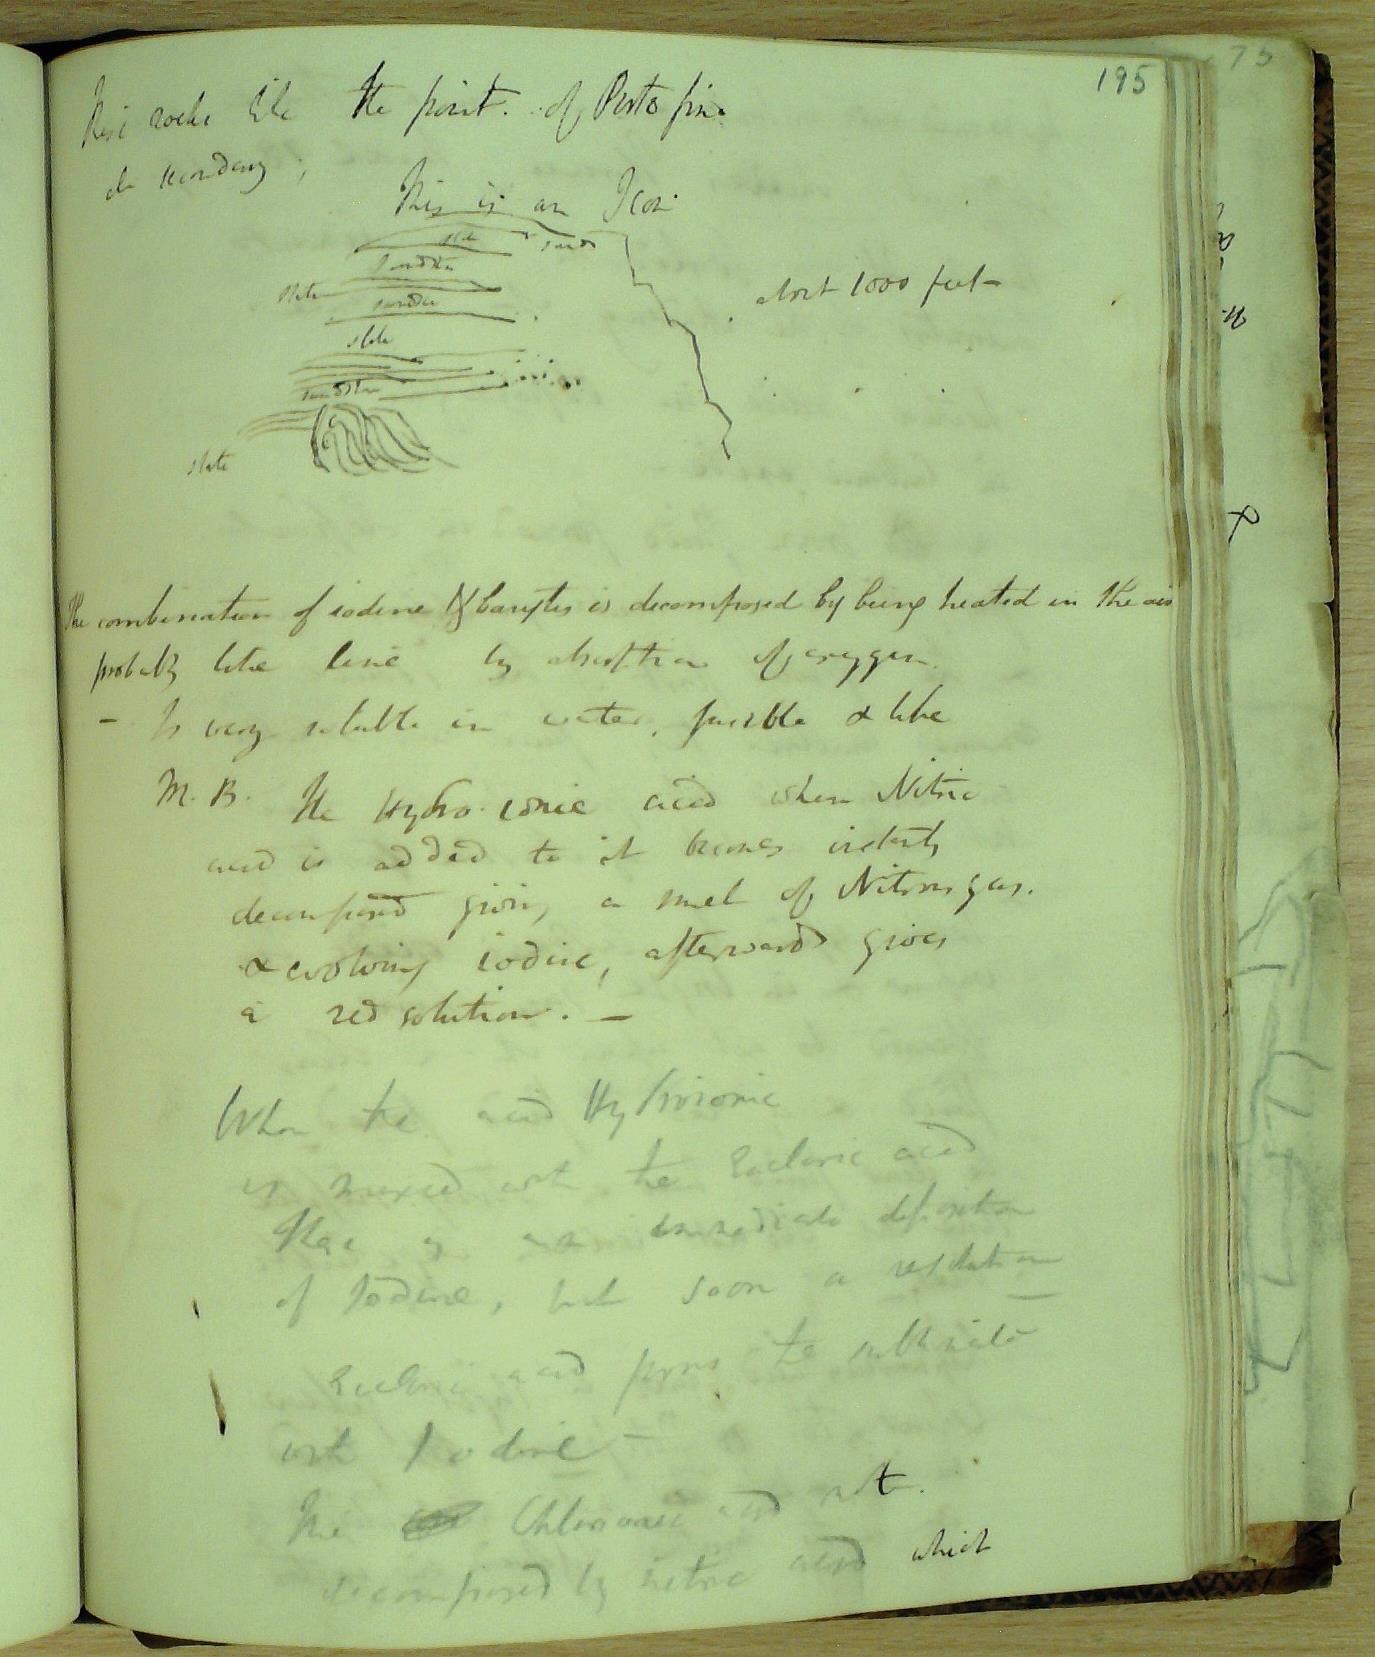 195
75
These rocks like the point. of Porto fino
are secondary ;
This is an Icon
slate sand
sandstn
slate
sandstn
slate
about 1000 feet
sandstn
slate
The combination of iodine & barytes is decomposed by being heated in the air
probably like lime by absorption of oxygen.
– Is very soluble in water, fusible & like
M. B. The Hydro-ionic acid when Nitric
acid is added to it becomes instantly
decomposed giving a smell of Nitrous gas.
& evolving iodine, afterwards gives
a red solution. –
When the acid Hydroionic
is mixed with the Euchloric acid
There is an immediate deposition
of Iodine, but soon a resolution
Euchloric acid forms the sublimate
with Iodine –
The Chlorionic acid not
decomposed by nitric acid which